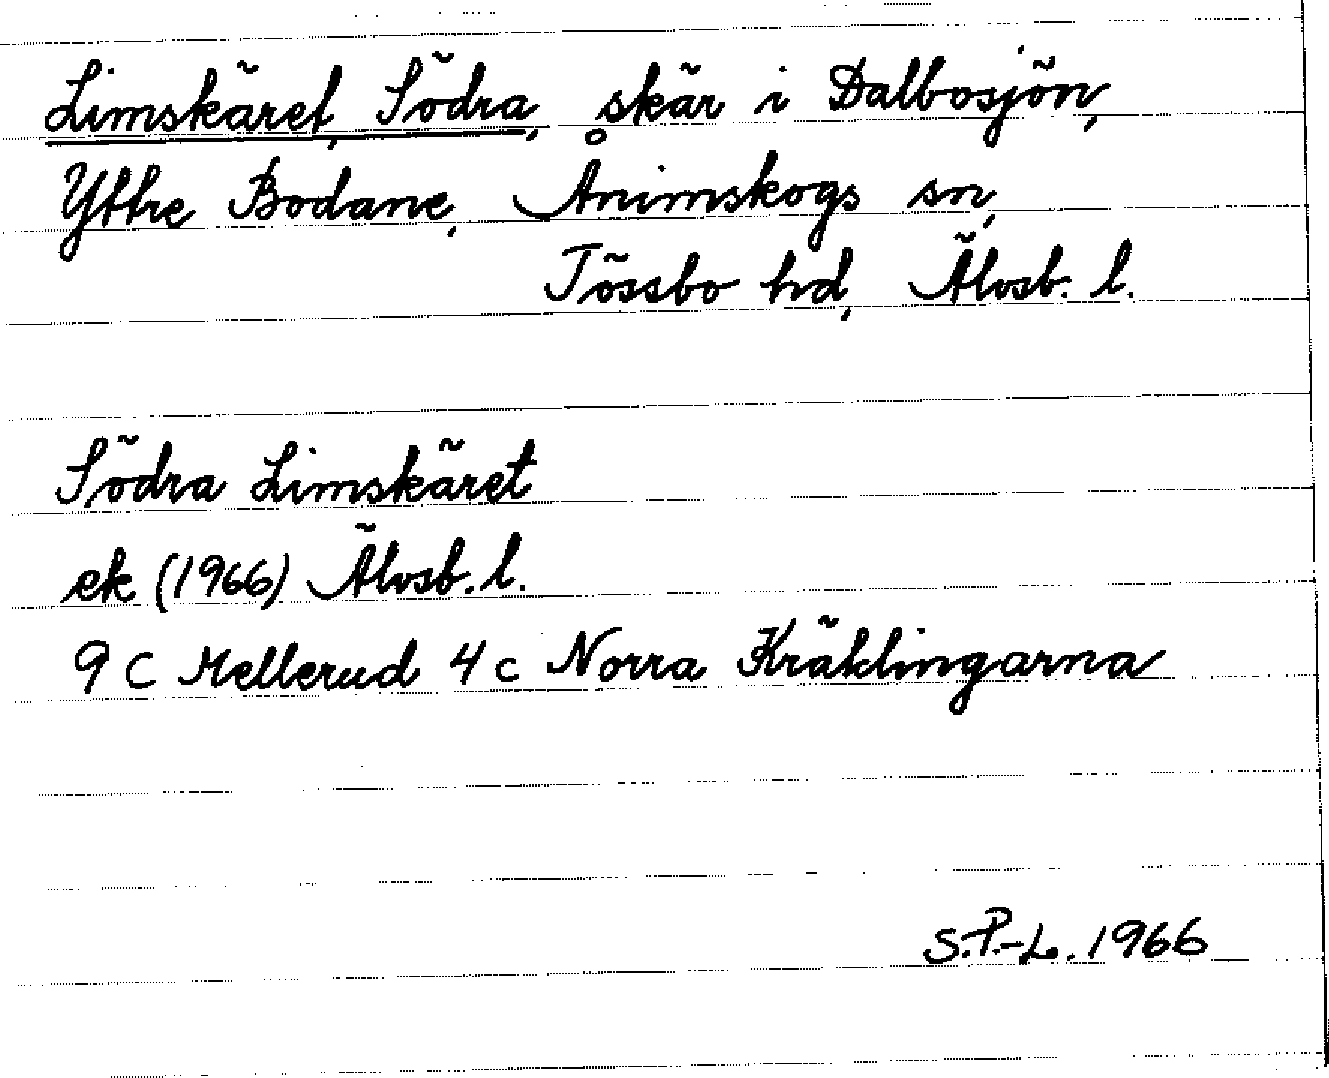 Limskäret, Södra, skär i Dalbosjön,
Yttre Bodane, Ånimskogs sn,
Tössbo hd, Älvsb. l.
Södra Limskäret
ek (1966) Älvsb. l.
9 C Mellerud 4 c Norra Kräklingarna
S.P.-L. 1966